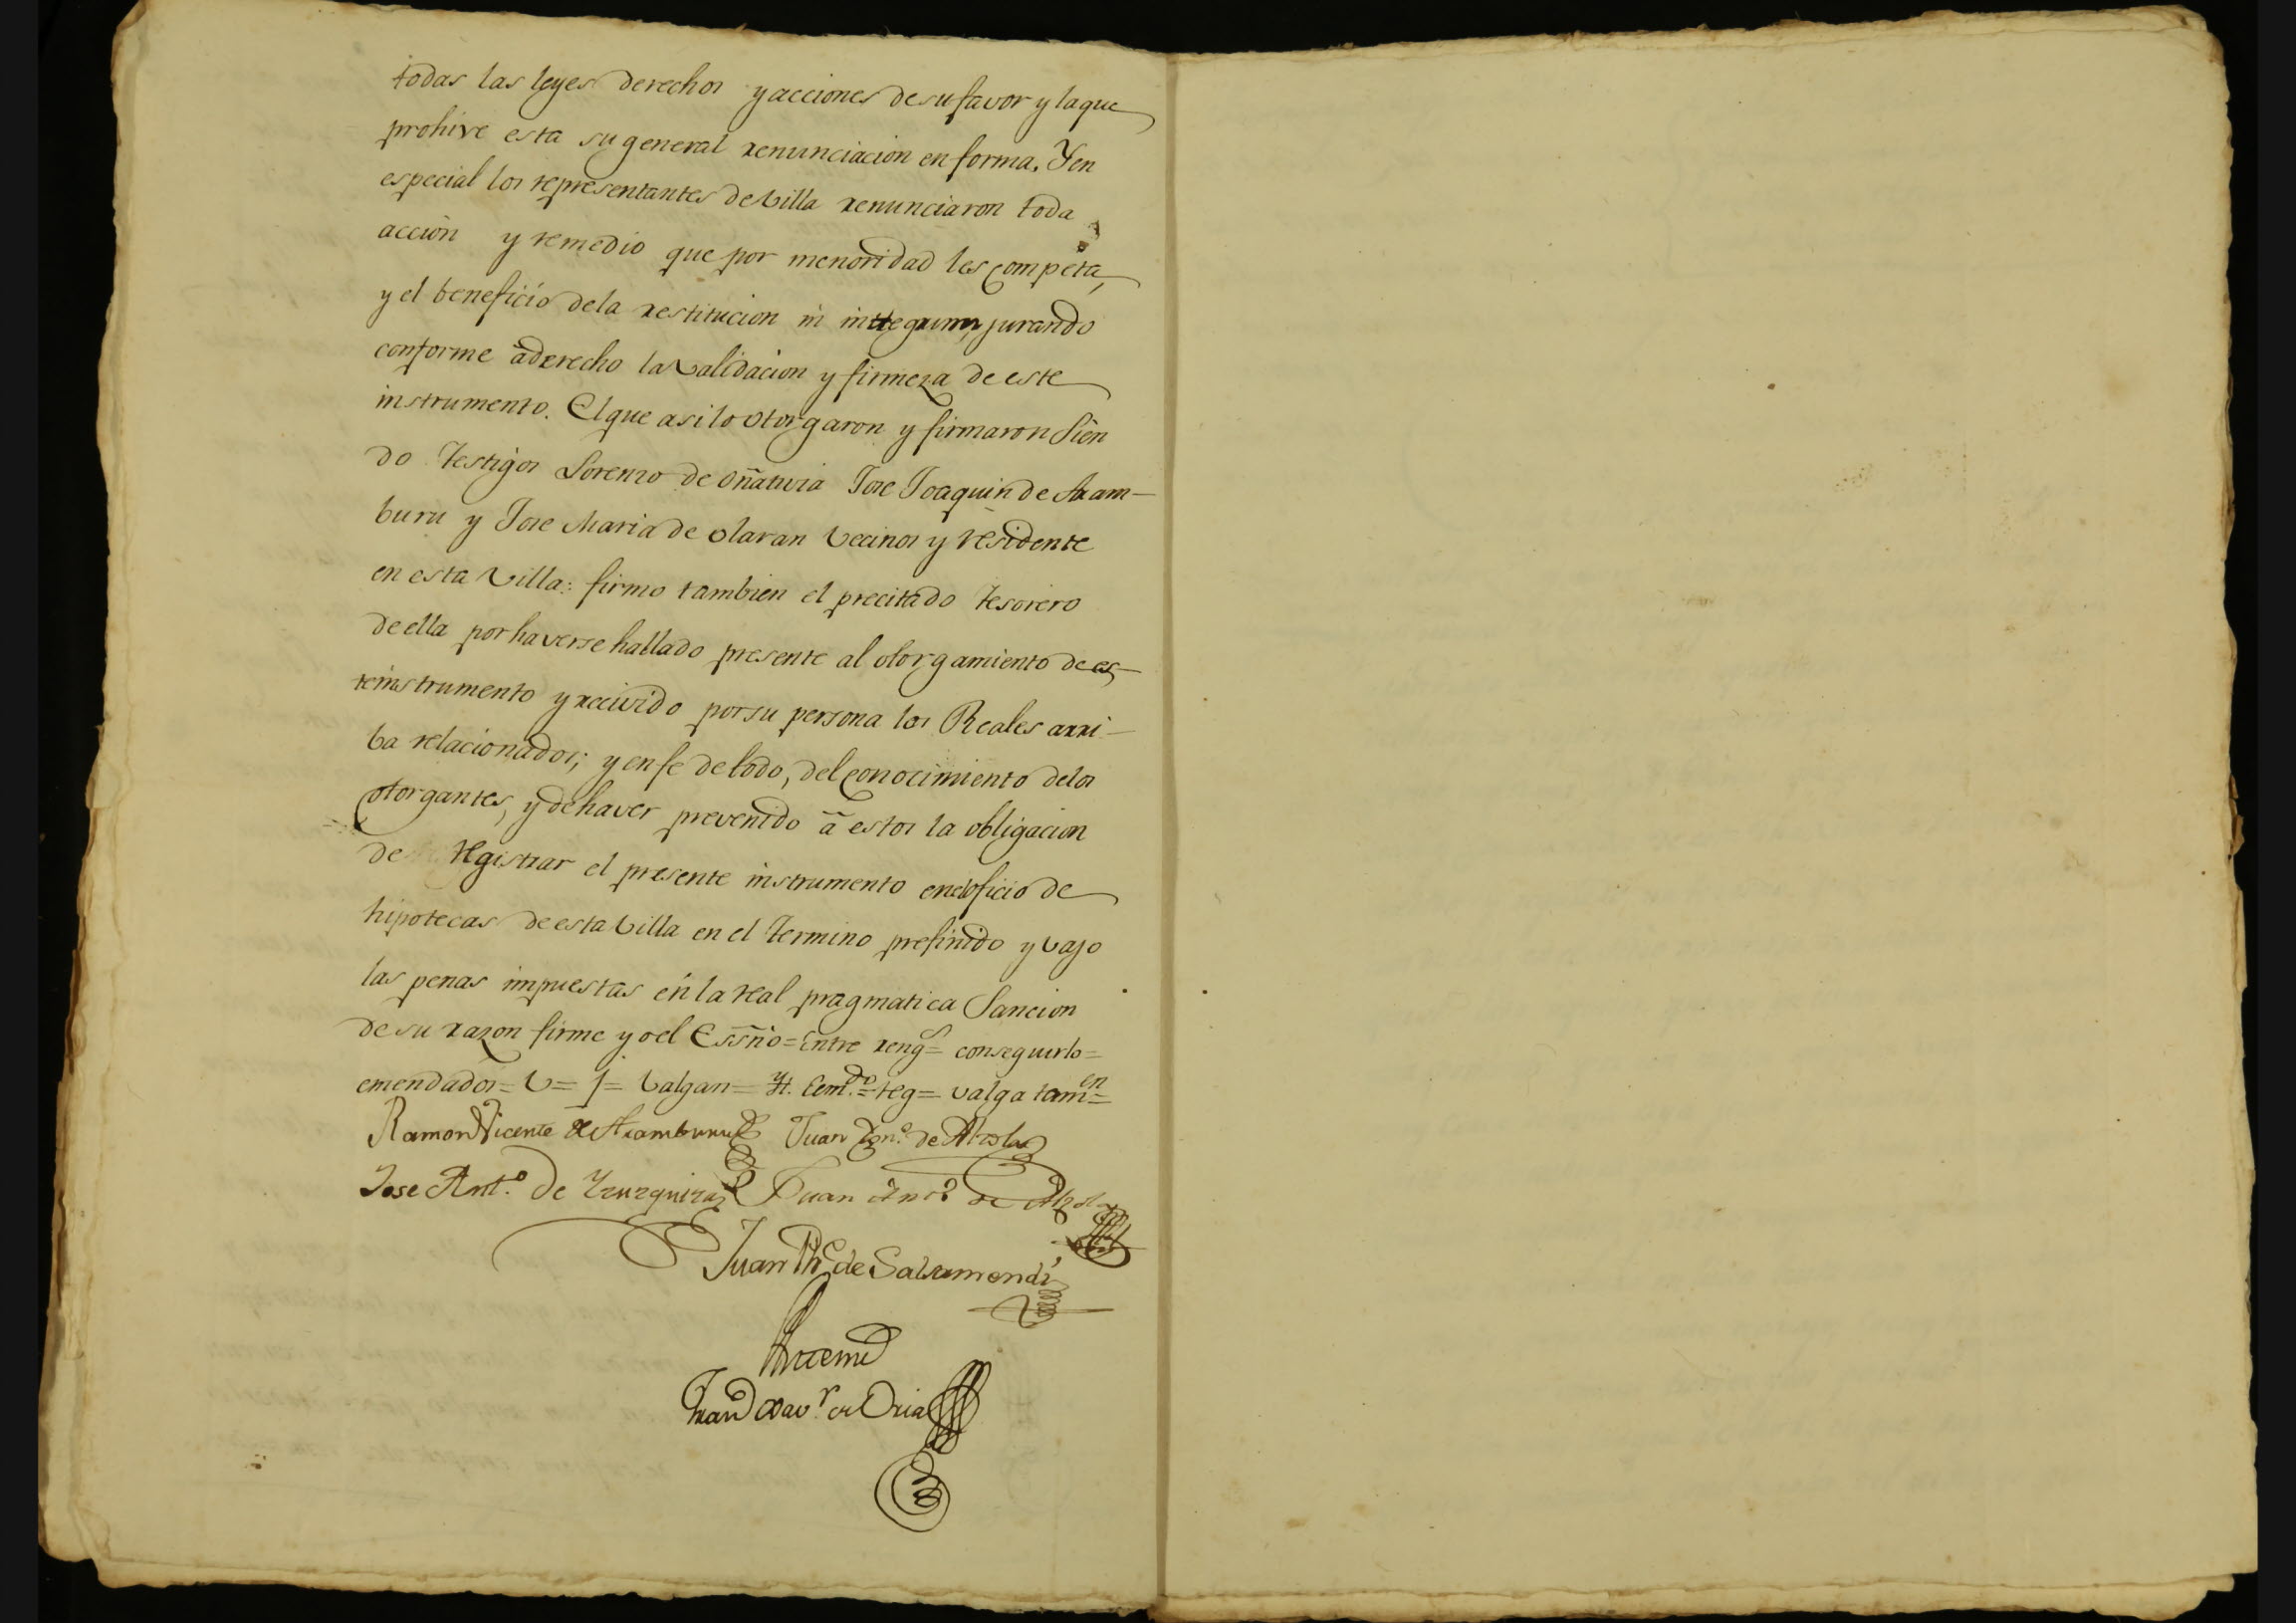 todas las leyes derechos y acciones de su favor y la que
prohive esta su general renunciacion en forma. Y en
especial los representantes de Villa renunciaron toda
accion y remedio que por menoridad les competa,
y el beneficio de la restitucion in integrum, jurando
conforme â derecho la validacion y firmeza de este
instrumento. El que asi lo otorgaron y firmaron sien
do testigos Lorenzo de Oñativia Jose Joaquin de Aram-
buru y Jose Maria de Olaran vecinos y residente
en esta Villa: firmo tambien el precitado tesorero
de ella por haverse hallado presente al otorgamiento de es-
te instrumento y recivido por su persona los Reales arri-
ba relacionados; y en fe de todo, del conocimiento de los
otorgantes, y de haver prevenido â estos la obligacion
de registrar el presente instrumento en el oficio de
hipotecas de esta Villa en el termino prefinido y vajo
las penas impuestas en la real pragmatica Sancion
de su razon firme yo el Essño = Entre rengs = conseguirlo =
emendados = V = J = Valgan = Yt. Emdo = reg = valga tamen =
Ramon Vicente de Aramburu Juan Ign.º de Alzola
Jose Ant.º de Yzuzquiza Juan de Alzola
Juan Phe de Salsamendi
Ante mi
Fran Xavr de Oria